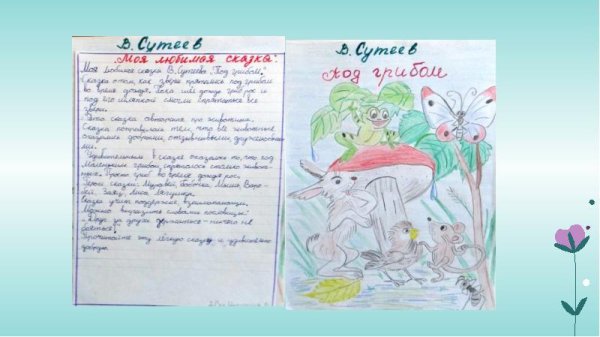 В. Сутеев
"Моя любимая сказка".
Моя любимая сказка В. Сутеева "Под грибом."
Сказка о том, как звери прятались под грибом
во время дождя. Пока шёл дождь гриб рос и
под его шляпкой смогли спрятаться все
звери.
Эта сказка авторская про животных.
Сказка понравилась тем, что все животные
оказались добрыми, отзывчивыми, дружелюбны-
ми.
Удивительным в сказке оказалось то, что под
маленьким грибом спряталось столько живот-
ных. Просто гриб во время дождя рос.
Герои сказки: Муравей, бабочка, Мышка, Воро-
бей, Заяц, Лиса, Лягушка.
Сказка учит поддержке, взаимопомощи.
Можно выразить словами пословицы:
"Друг за друга держаться - ничего не
бояться".
Прочитайте эту лёгкую сказку и удивительно
добрую.
В. Сутеев
Под грибом